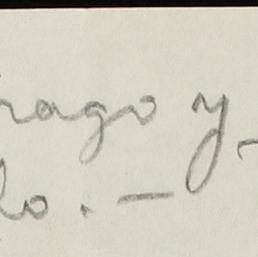 rago y
lo. —